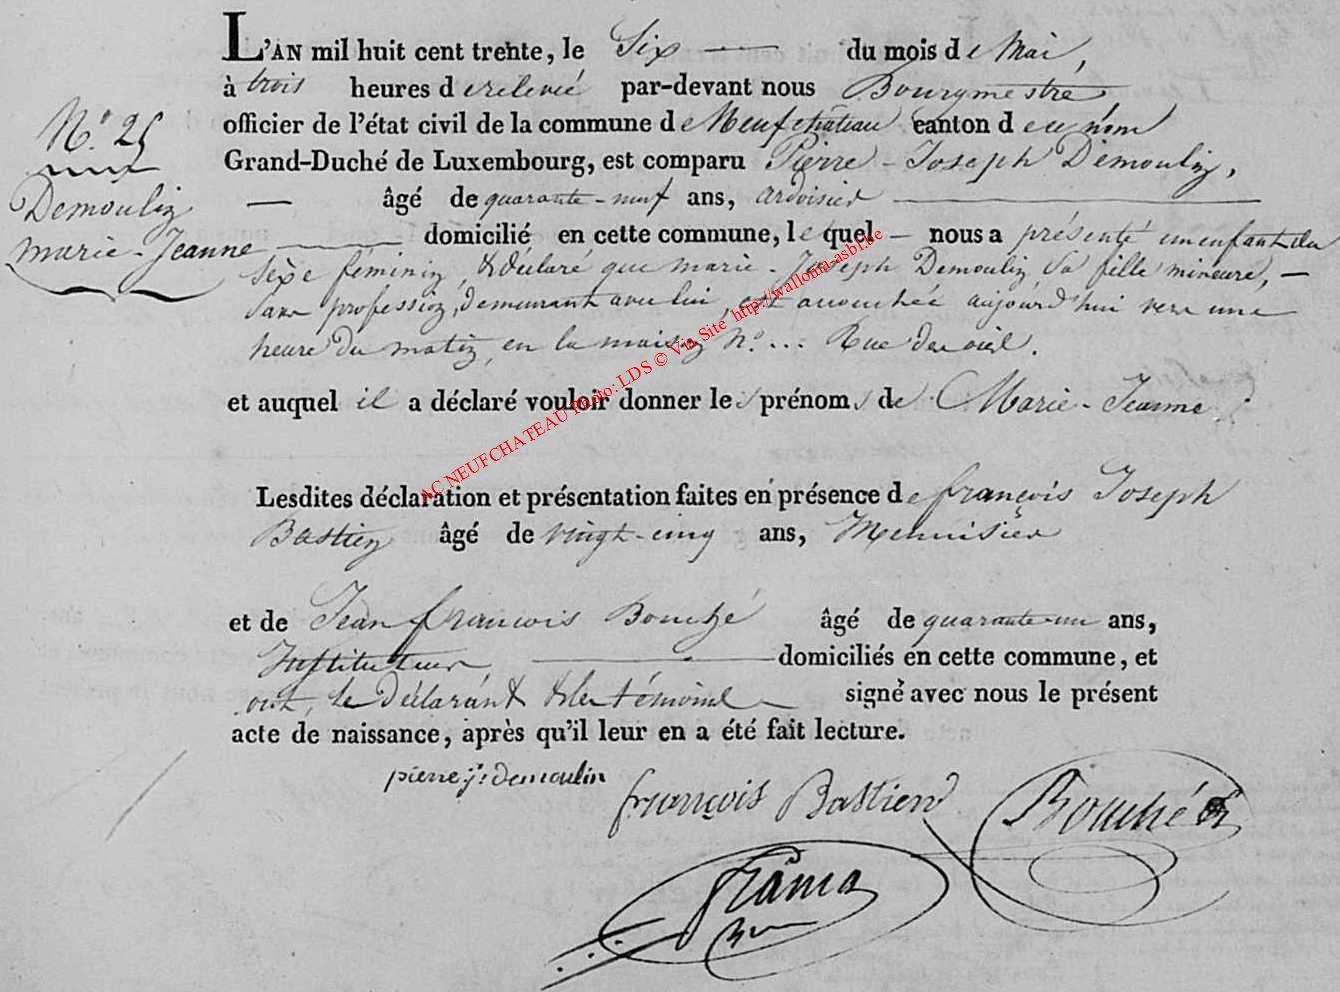 L'AN mil huit cent trente, le Six du mois de Mai,
à trois heures de relevée par-devant nous Bourgmestre,
officier de l'état civil de la commune de Neufchateau canton de ce nom
Grand-Duché de Luxembourg, est comparu Pierre-Joseph Demoulin,
âgé de quarante-neuf ans, ardoisier
domicilié en cette commune, lequel nous a présenté un enfant du
sexe feminin, & déclaré que marie-Joseph Demoulin sa fille mineure,
Sans profession, demeurant avec lui, est accouchée aujourd'hui vers une
heure du matin, en la maison N°... Rue
et auquel il a déclaré vouloir donner les prénoms de Marie-Jeanne.
Lesdites déclaration et présentation faites en présence de françois Joseph
Bastien âgé de vingt-cinq ans, Menuisier
et de Jean françois Bouché âgé de quarante-un ans,
Instituteur domiciliés en cette commune, et
ont, le Déclarant & les témoins signé avec nous le présent
acte de naissance, après qu'il leur en a été fait lecture.
pierre js demoulin
françois Bastien
Bouché
N° 25
Demoulin
marie-Jeanne
AC NEUFCHATEAU Photo: LDS © Via Site http://wallonia-asbl.be